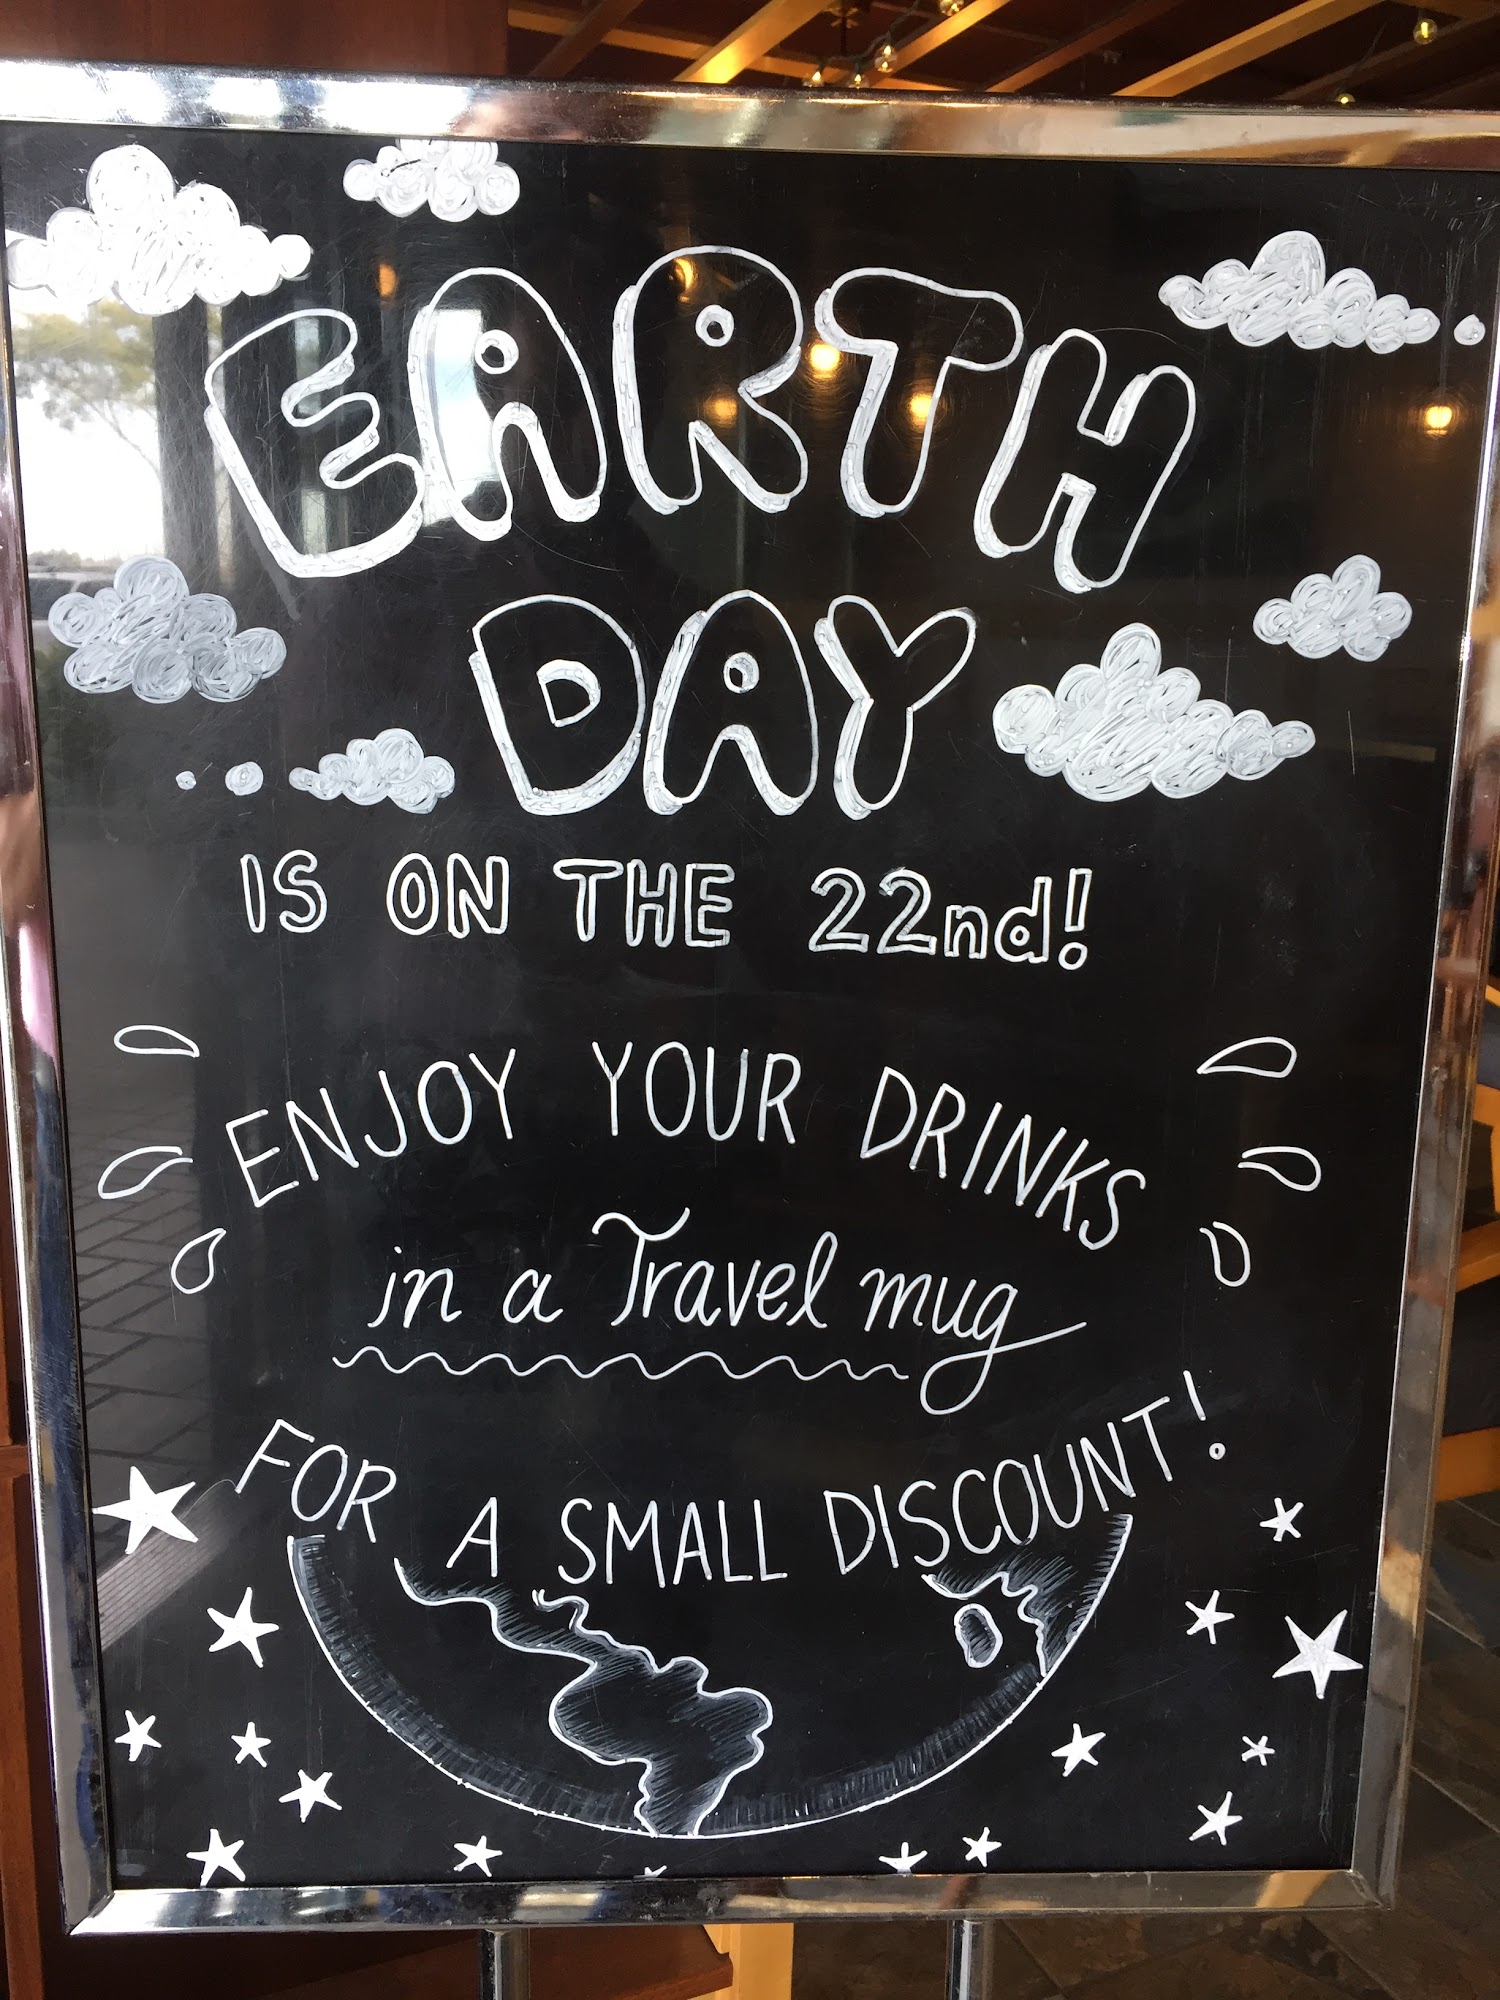 EARTH
DAY
IS ON THE 22nd!
ENJOY YOUR DRINKS
in a Travel mug
FOR A SMALL DISCOUNT!